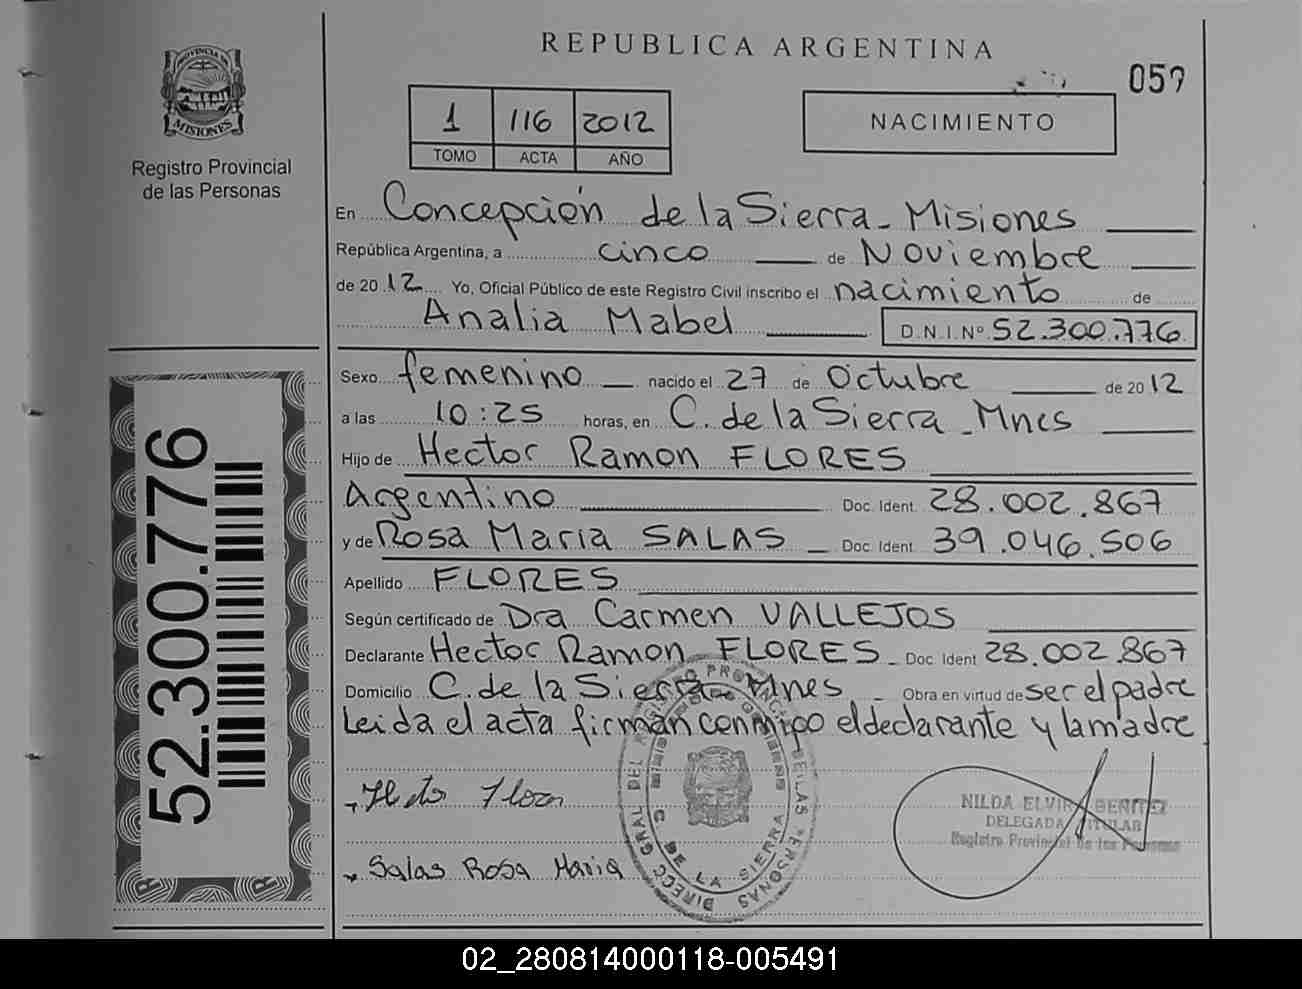 REPUBLICA ARGENTINA
059
PROVINCIA DE
MISIONES
Registro Provincial
de las Personas
1 116 2012
TOMO ACTA AÑO
NACIMIENTO
En Concepción de la Sierra - Misiones
República Argentina, a cinco de Noviembre
de 2012 Yo, Oficial Público de este Registro Civil inscribo el nacimiento de
Analia Mabel D.N.I.Nº 52.300.776
Sexo femenino nacido el 27 de Octubre de 2012
a las 10:25 horas, en C. de la Sierra - Mnes
Hijo de Hector Ramon FLORES
Argentino Doc. Ident. 28.002.867
y de Rosa Maria SALAS Doc. Ident. 39.046.506
Apellido FLORES
Según certificado de Dra Carmen VALLEJOS
Declarante Hector Ramon FLORES - Doc. Ident 28.002.867
Domicilio C. de la Sierra - Mnes - Obra en virtud de ser el padre
Leida el acta firman conmigo el declarante y la madre
Flores
Salas Rosa Maria
DIRECC GRAL DEL REGISTRO PROVINCIAL DE LAS PERSONAS
MINISTERIO DE GOBIERNO
C. DE LA SIERRA
NILDA ELVIRA BENITEZ
DELEGADA TITULAR
Registro Provincial de las Personas
52.300.776
02_280814000118-005491